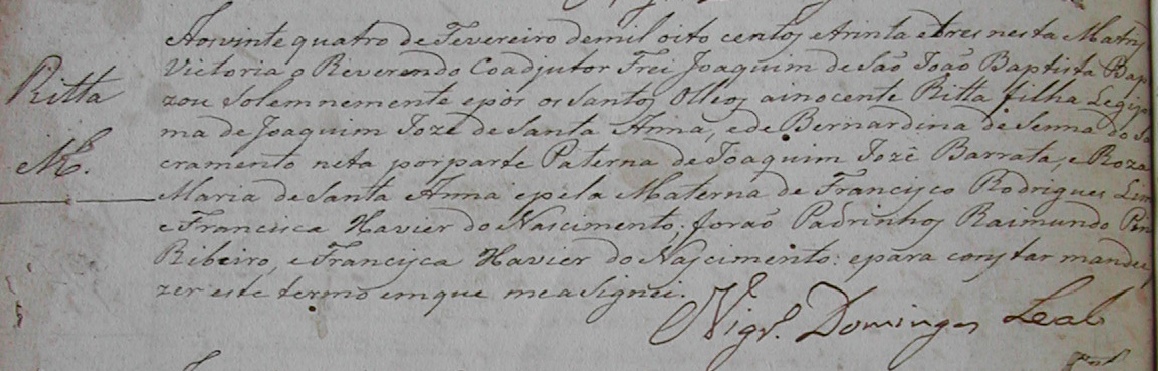 Aosvinte quatro de Fevereiro demil oito centos e trinta e tres nesta Matriz
Victoria o Reverendo Coadjutor Frei Joaquim de São João Baptista Bap
Ritta
zou solemnemente epôs os Santos Olleos ainocente Ritta filha Legiti
ma de Joaquim Jozê de Santa Anna, ede Bernardina de Senna do Sa
cramento neta porparte Paterna de Joaquim Jozê Barrata, e Roza
Maria de Santa Anna epela Materna de Francisco Rodrigues Lim
e Francisca Xavier do Nascimento: forão Padrinhos Raimundo
Ribeiro, e Francisca Xavier do Nascimento: epara constar mandei
zer este termo emque measignei.
Domingos Leal